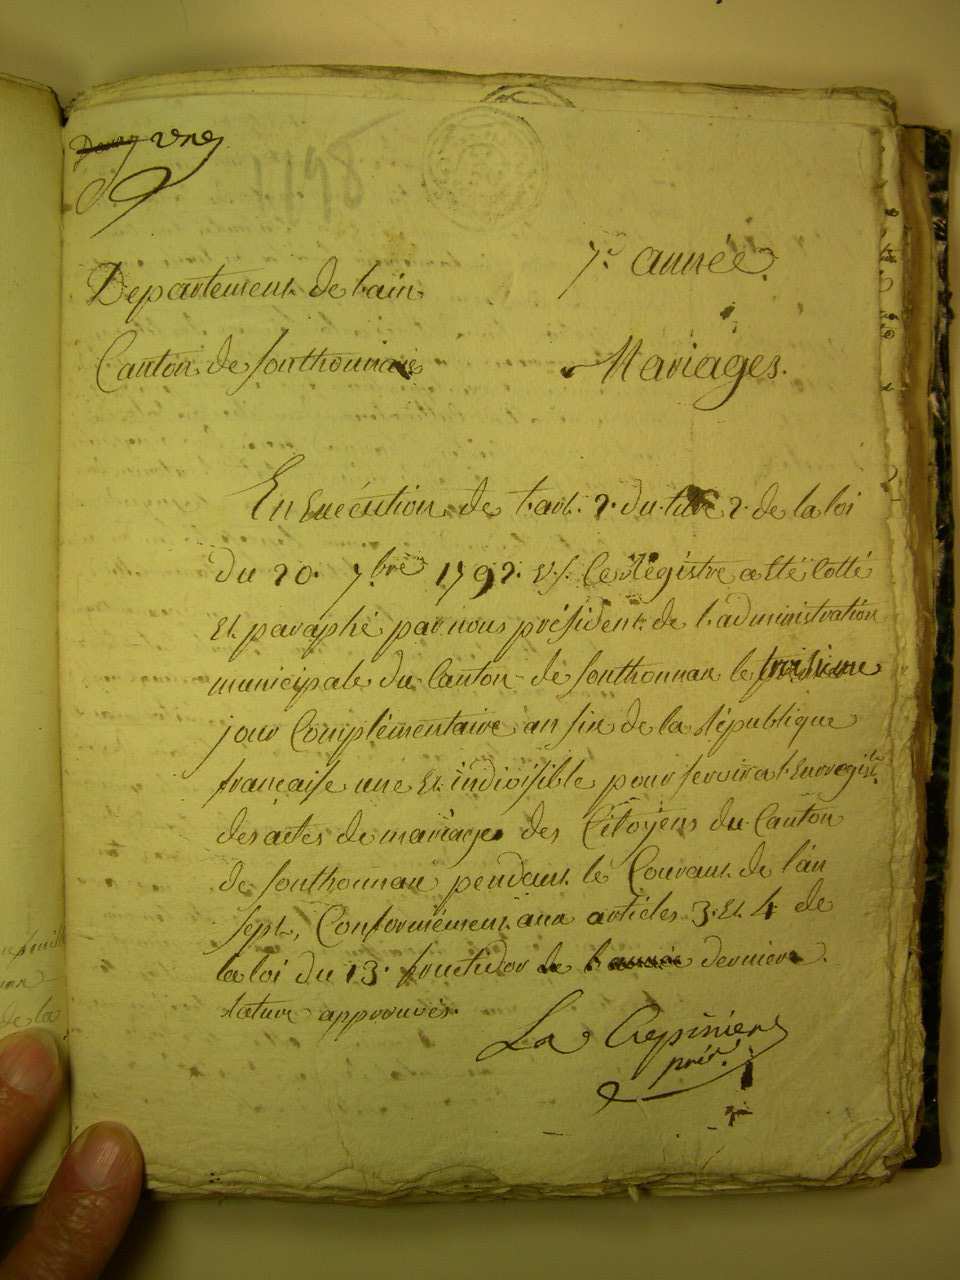 une
7e. année.
Departement. de l'ain
Canton de Sonthonnax
Mariages.
En Exécution de l'art. 2. du titre 2. de la loi
du 20. 7.bre 1792. v.s. Ce Régistre a Eté Cotté
Et. paraphé par nous président. de l'administration
municipale du Canton de Sonthonnax le troisieme
jour Complémentaire an six de la République
française une Et. indivisible pour servir a l'Enregist.
des actes de mariage des Citoyens du Canton
de Sonthonnax pendant. le Courant. de l'an
Sept, Conformément. aux articles 3. Et. 4 de
la loi du 13. fructidor dernier.
rature approuvés.
La Crepiniere
prés.